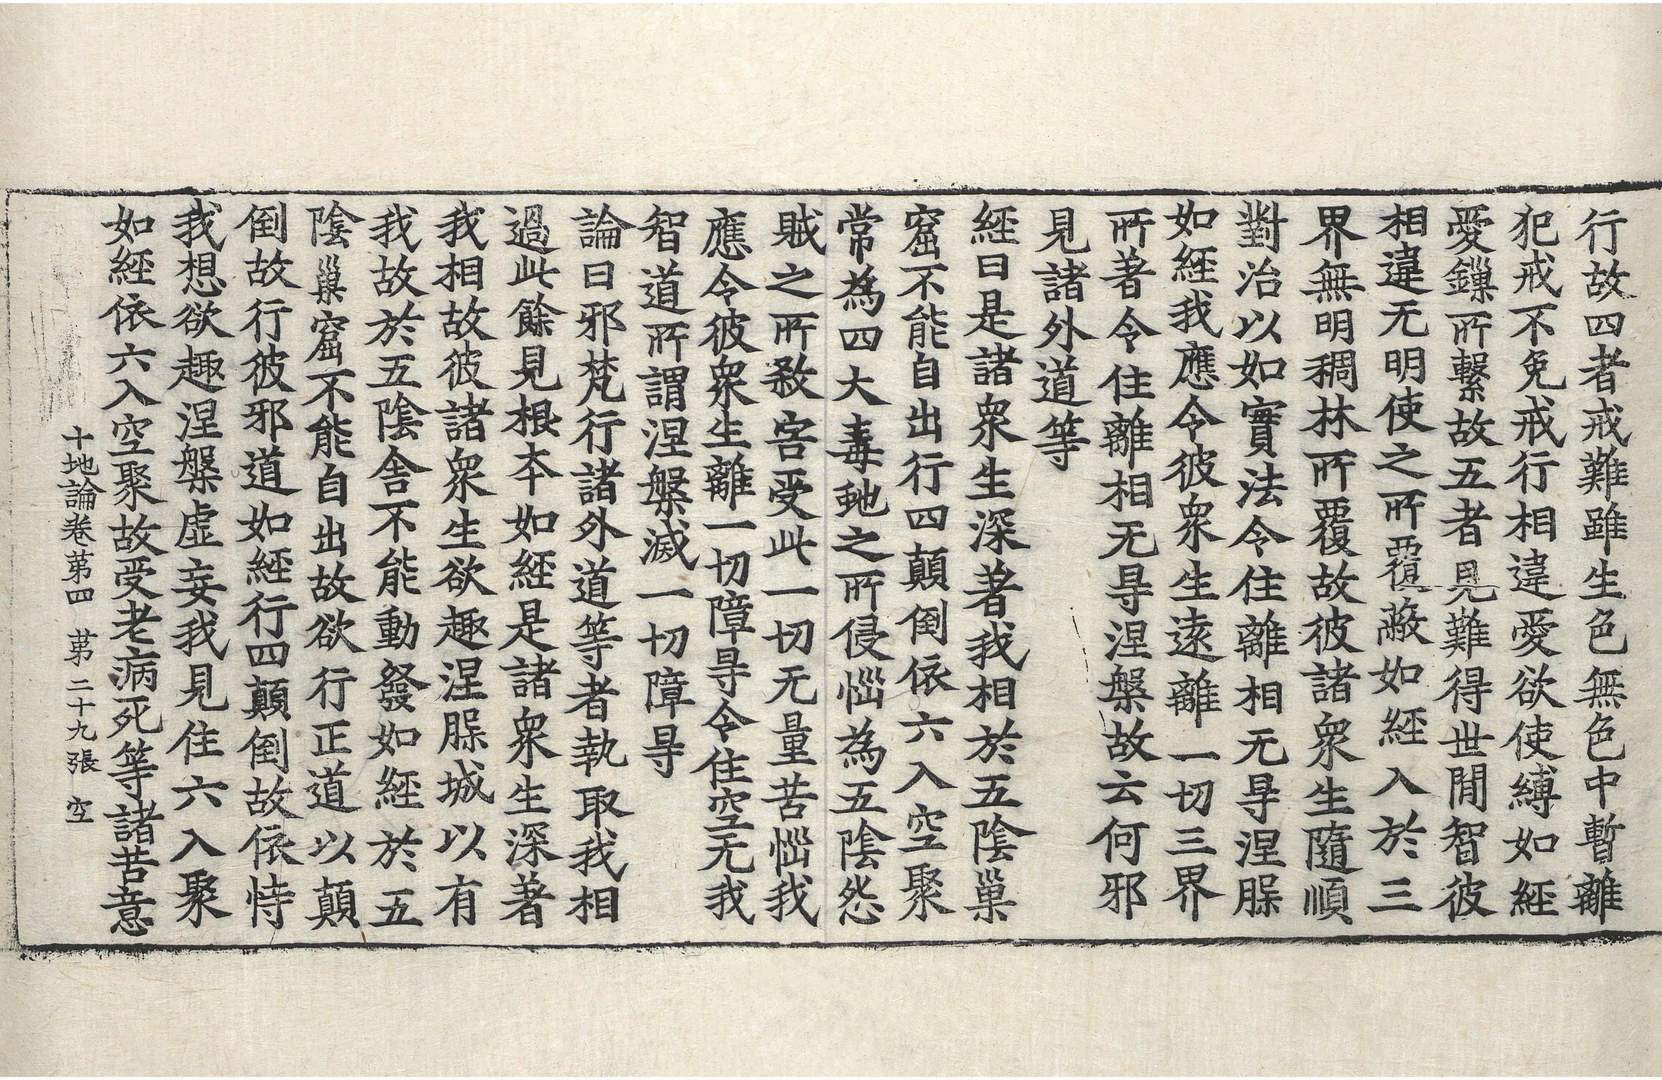 行故四者戒難雖生色無色中暫離
犯戒不免戒行相違愛欲使縛如經
愛鏁所繫故五者見難得世閒智彼
相違无明使之所覆蔽如經入於三
界無明稠林所覆故彼諸衆生隨順
對治以如實法令住離相无㝵涅槃
如經我應令彼衆生遠離一切三界
所著令住離相无㝵涅槃故云何邪
見諸外道等
經曰是諸衆生深著我相於五陰巢
窟不能自出行四顛倒依六入空聚
常為四大毒虵之所侵惱為五陰怨
賊之所殺害受此一切无量苦惱我
應令彼衆生離一切障㝵令住空无我
智道所謂涅槃滅一切障㝵
論曰邪梵行諸外道等者執取我相
過此餘見根本如經是諸衆生深著
我相故彼諸衆生欲趣涅槃城以有
我故於五陰舍不能動發如經於五
陰巢窟不能自出故欲行正道以顛
倒故行彼邪道如經行四顛倒故依恃
我想欲趣涅槃虛妄我見住六入聚
如經依六入空聚故受老病死等諸苦意
十地論卷苐四 苐二十九張 空